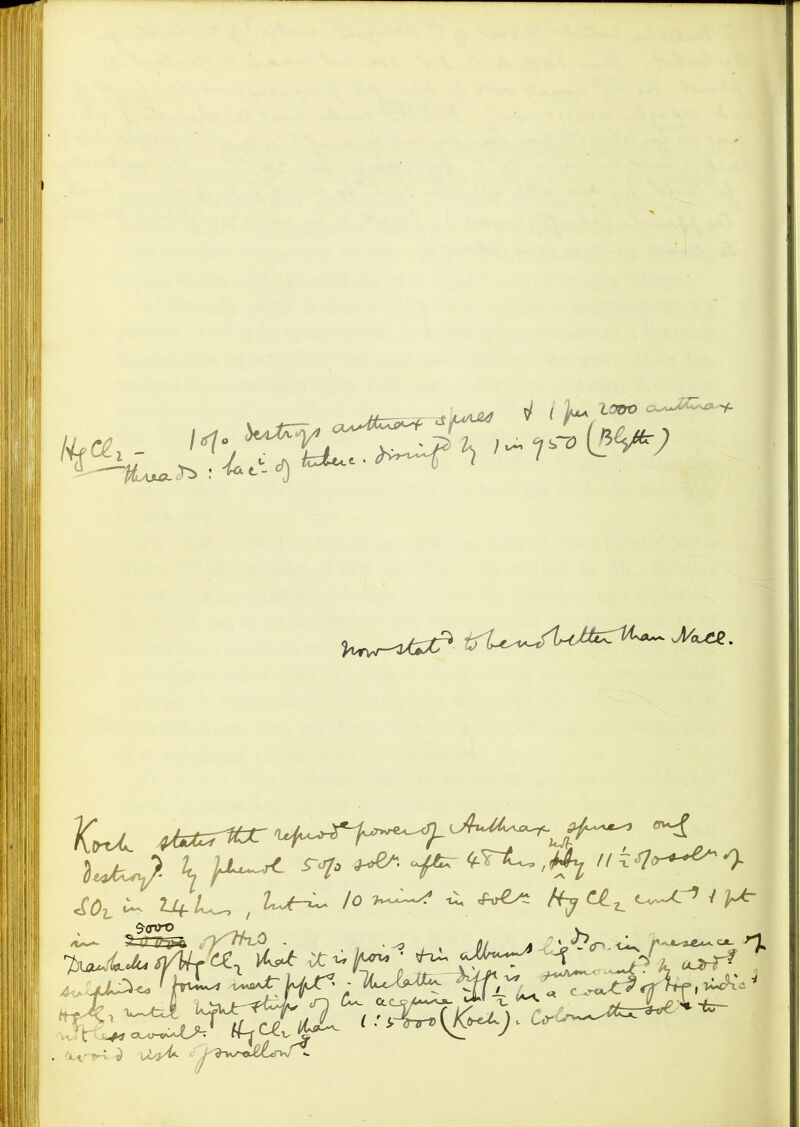 HgCl2 – 10% destroys anthrax spores & 1 per 2000 anthrax
threads : baci- of tuberc. disinfd by 1 in 950 (Blyth)
now statd to be no better than NaCl.
Koch states tht reprodve power of Anthrax spores only
destroyd by phenol 5% soln after 48 hrs, not by 11½% soln of
SO2 in 24 hrs, but in 10 mins in soln HgCl2 contg 1 pt
in 5000 of H2O.
Drawbacks of HgCl2 that it is pois & in albums liqds or in presence of
sulphides forms inert ppts. The latter diffy is surmountd by addg
HgCl2 until bright strip of Cu acquires in ½ hr a coat of Hg, indicg
not less availe HgCl2 than 1 : 5000 (Koch). Colour the soln to
avoid risk of swallowg